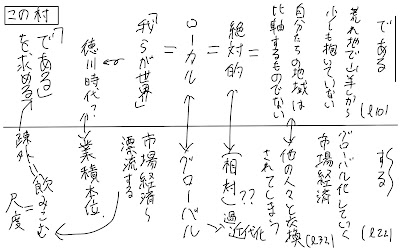 である
荒れ地で山羊しか
少しも抱いていない
自分たちの地域は
比較するものでない
(l10)
＝
絶対的
＝
ローカル
＝
「我らが世界」
徳川時代？
「である」
を求める
この村
する
グローバル化していく
市場経済
(l22)
他の人々と交換
されてしまう
(l32)
(相対)
??
過近代化
グローバル
市場経済〜
漂流する
業積本位
疎外
飲みこむ
尺度＝